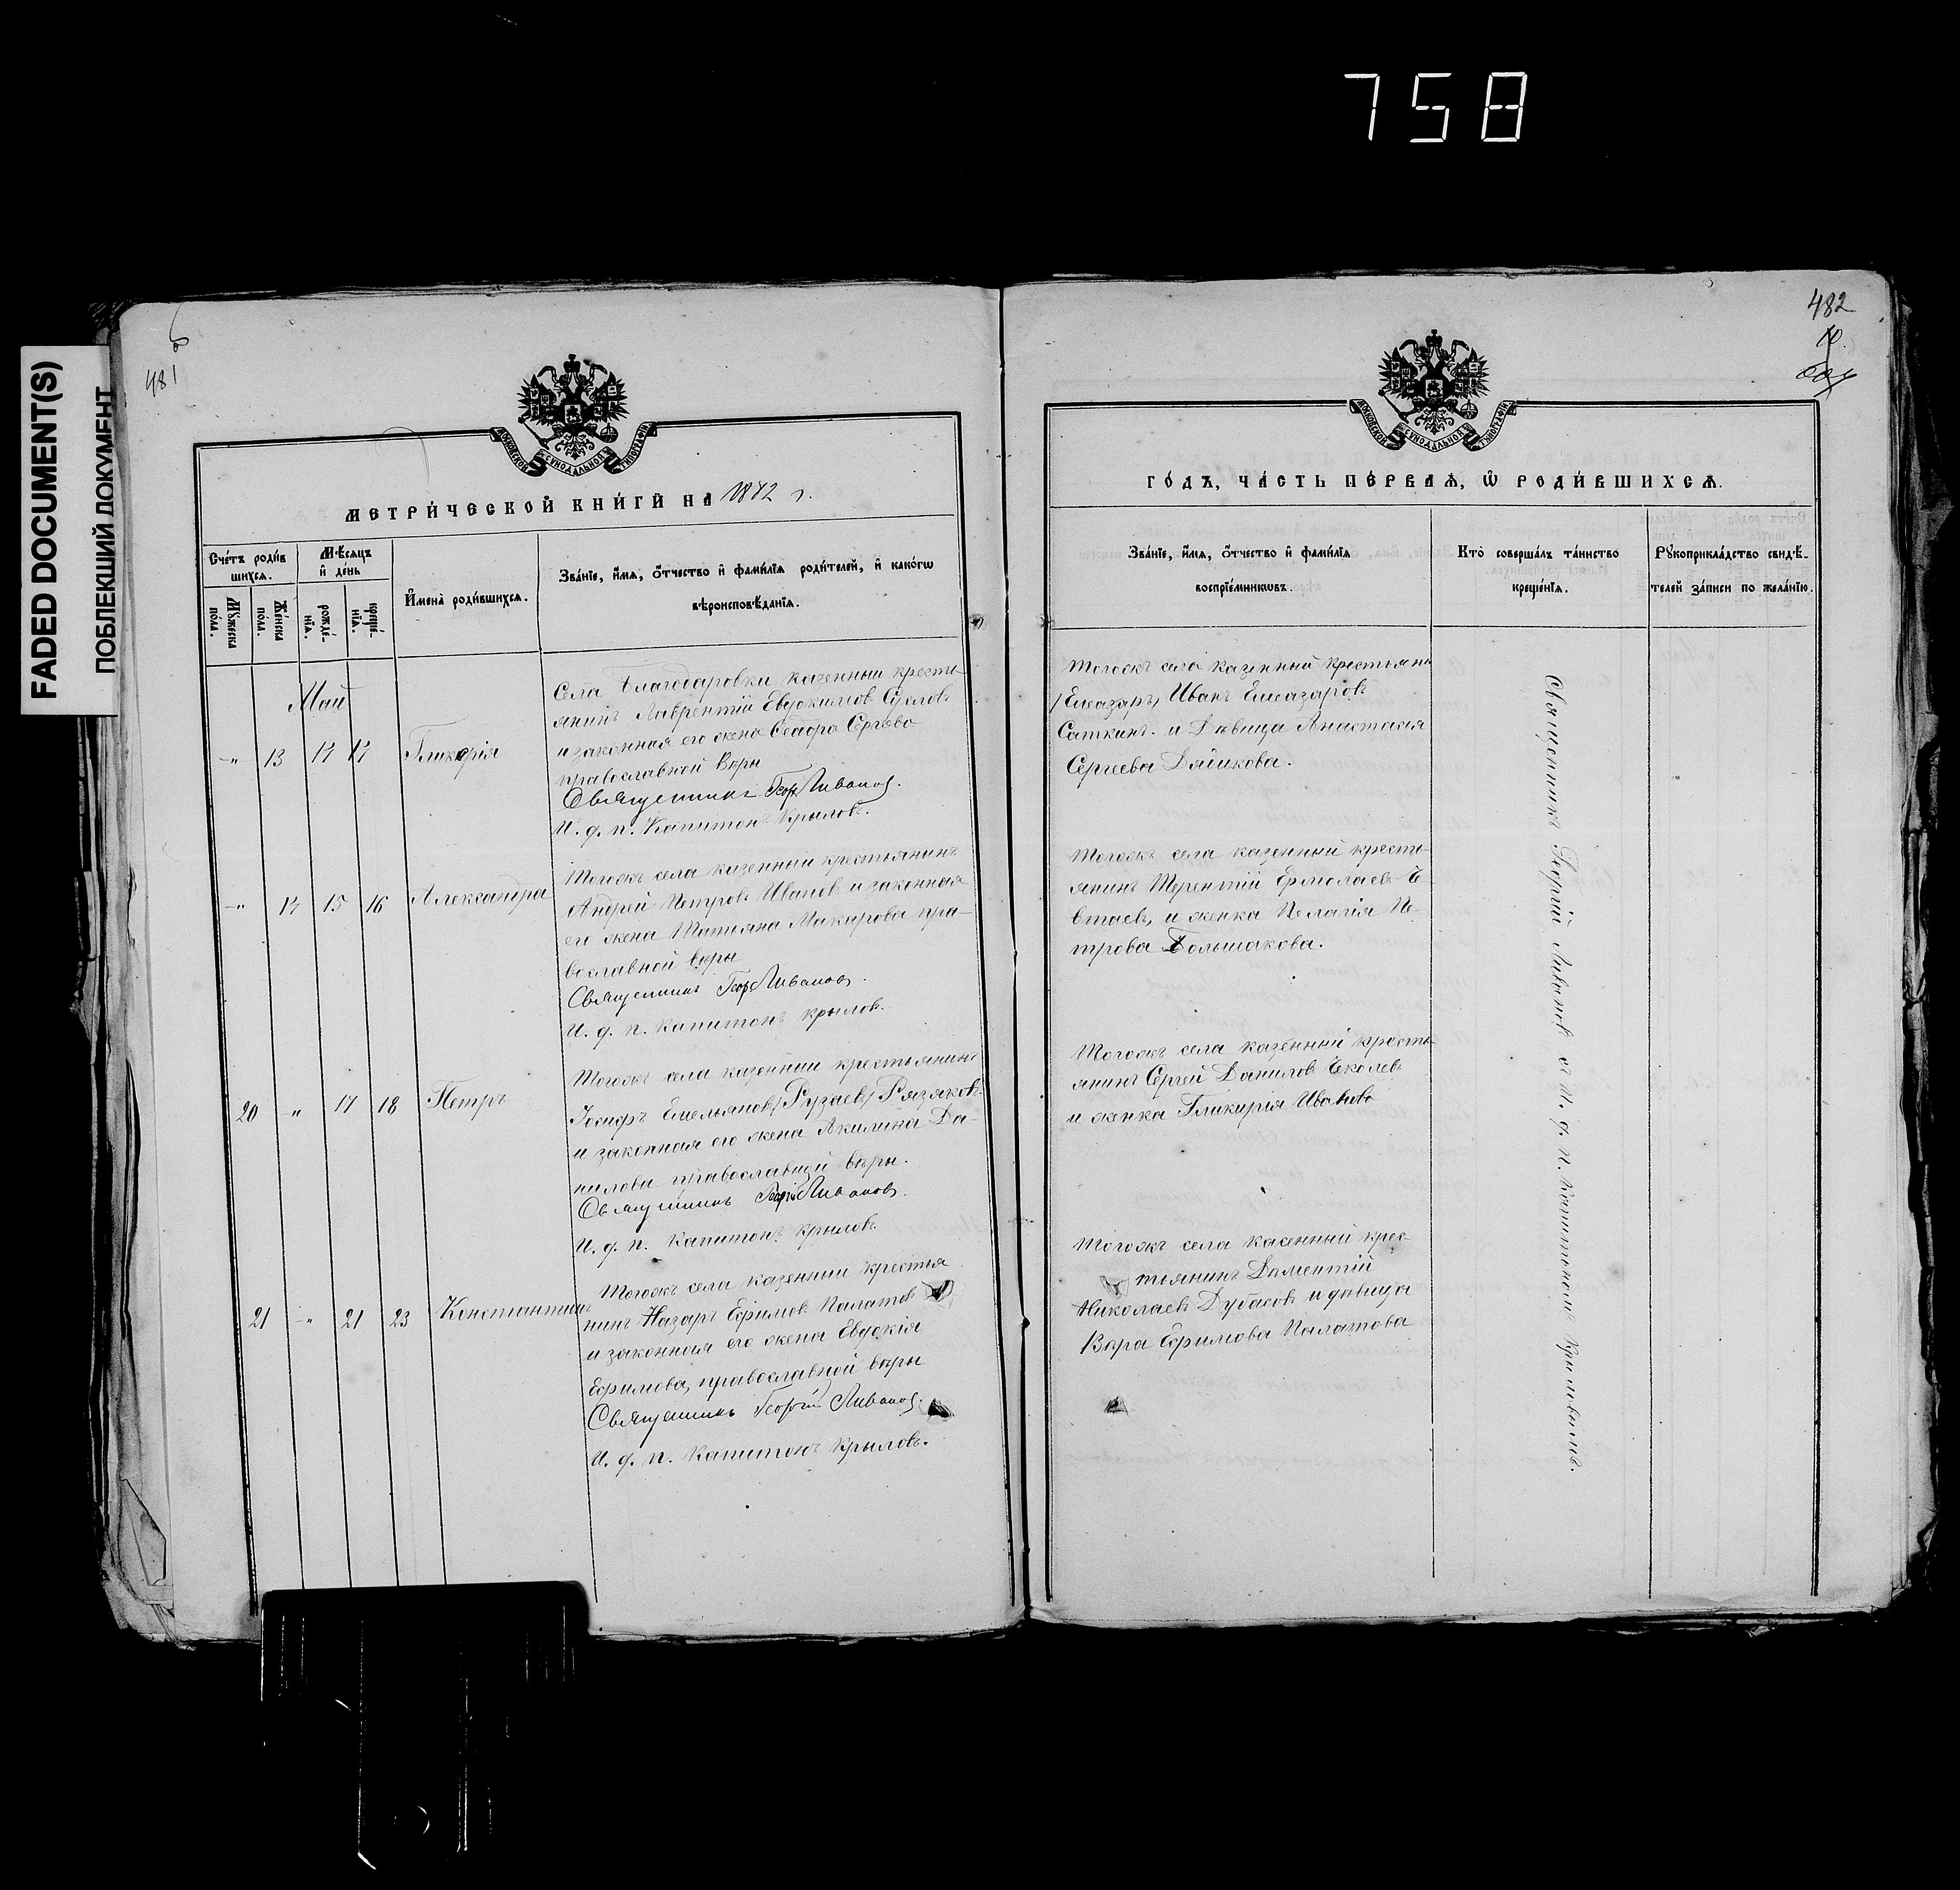 758
FADED DOCUMENT(S)
ПОБЛЕКШИЙ ДОКУМЕНТ
481
МОСКОВСКОЙ СѴНОДАЛЬНОЙ ТИПОГРАФІИ
МЕТРИ́ЧЕСКОЙ КНИ́ГИ НА 1872 г.
Сче́тъ роди́вшихсѧ.
Мѣ́сяцъ и҆ де́нь
И҆мена̀ роди́вшихсѧ.
Зва́нїе, и҆́мѧ, ѻ҆́тчество и҆ фами́лїѧ роди́телей, и҆ како́гѡ
вѣроисповѣ́данїѧ.
Мꙋ́жеска по́ла.
Же́нска по́ла.
рожде́нїѧ.
креще́нїѧ.
Май
" 13 14 14 Гликерія
Села Благодаровки казенный кресть
янинъ Лаврентій Евдокимов
и законная его жена Феодора Сергѣева
православной вѣры
Священникъ Геор. Ливановъ.
И. д. п. Капитонъ Крыловъ.
" 14 15 16 Александра
Тогожъ села казенный крестьянинъ
Андрей Петровъ Иванов и законная
его жена Татьяна Макарова пра-
вославной вѣры
Священникъ Геор Ливановъ.
И. д. п. Капитонъ Крыловъ.
20 " 17 18 Петръ
Тогожъ села казенный крестьянинъ
Іосифъ Емельяновъ /Рузаевъ/ Рязяковъ
и законная его жена Акилина Да-
нилова православной вѣры.
Священникъ Георгій Ливановъ.
И. д. п. Капитонъ Крыловъ.
21 " 21 23 Константинъ
Тогожъ села казенный крестья
нинъ Назаръ Ефимовъ Палатов
и законная его жена Евдокія
Ефимова, православной вѣры
Священникъ Георгій Ливановъ.
И. д. п. Капитонъ Крыловъ.
482
МОСКОВСКОЙ СѴНОДАЛЬНОЙ ТИПОГРАФІИ
ГО́ДЪ, ЧА́СТЬ ПЕ́РВАѦ, Ѡ҆ РОДИ́ВШИХСѦ.
Зва́нїе, и҆́мѧ, ѻ҆́тчество и҆ фами́лїѧ
воспрїе́мникѡвъ.
Кто̀ соверша́лъ та́инство
креще́нїѧ.
Рꙋкоприкла́дство свидѣ́-
телей за́писи по жела́нїю.
Тогожъ села казенный крестьянинъ
/Елеазаръ/ Иванъ Елеазаровъ
Саткинъ. и Дѣвица Анастасія
Сергеева Дяйикова.
Тогожъ села казенный кресть-
янинъ Терентій Ермолаевъ Е
втаевъ, и женка Пелагія Пе-
трова Большакова.
Тогожъ села казенный кресть-
янинъ Сергей Данилов
и женка Гликерія Иванова
Тогожъ села касенный крес
тьянинъ Даментій
Николаевъ Дубасовъ и дѣвица
Вѣра Ефимова Палатова
Священникъ Георгій Ливановъ съ И. д. п. Капитономъ Крыловымъ.